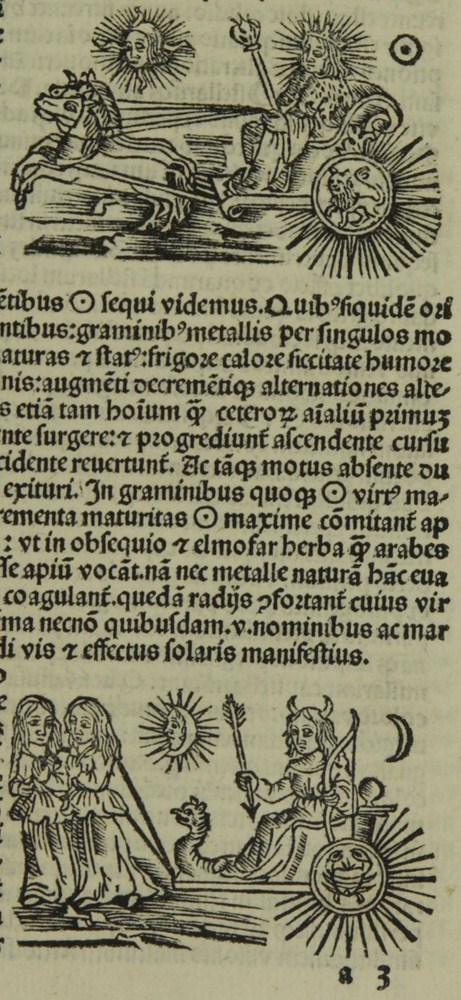 ētibus ☉ sequi videmus. Quibꝰ siquidē ori
ntibus: graminibꝰ metallis per singulos mo
aturas ⁊ statꝰ: frigore calore siccitate humore
nis: augmēti decremētiqꝫ alternationes alte-
s etiā tam hoīum q̄ꝫ ceteroꝝ aīaliū primuꝫ
nte surgere: ⁊ progrediunt̄ ascendente cursu
cidente reuertunt̄. Ac tāqꝫ motus absente du
exituri. In graminibus quoqꝫ ☉ virtꝰ ma-
rementa maturitas ☉ maxime cōmitant̄ ap
: vt in obsequio ⁊ elmofar herba q̄ꝫ arabes
sse apiū vocāt. nā nec metalle naturā hāc eua
coagulant̄. quedā radijs ꝯfortant̄ cuius vir
ma necnō quibusdam .v. nominibus ac mar
di vis ⁊ effectus solaris manifestius.
a 3